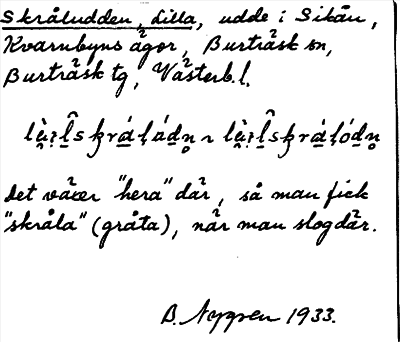 Skråludden, Lilla, udde i Sikån,
Kvarnbyns ägor, Burträsk sn,
Burträsk tg, Västerb.l.
Det växer "hera" där, så man fick
"skråla" (gråta), när man slog där.
B. Nygren 1933.